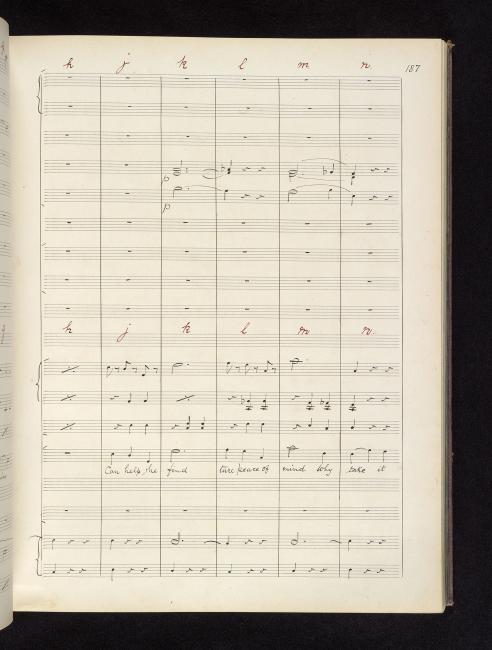 h j k l m n 187
p
p
h j k l m n.
Can help the find ture peace of mind Why take it